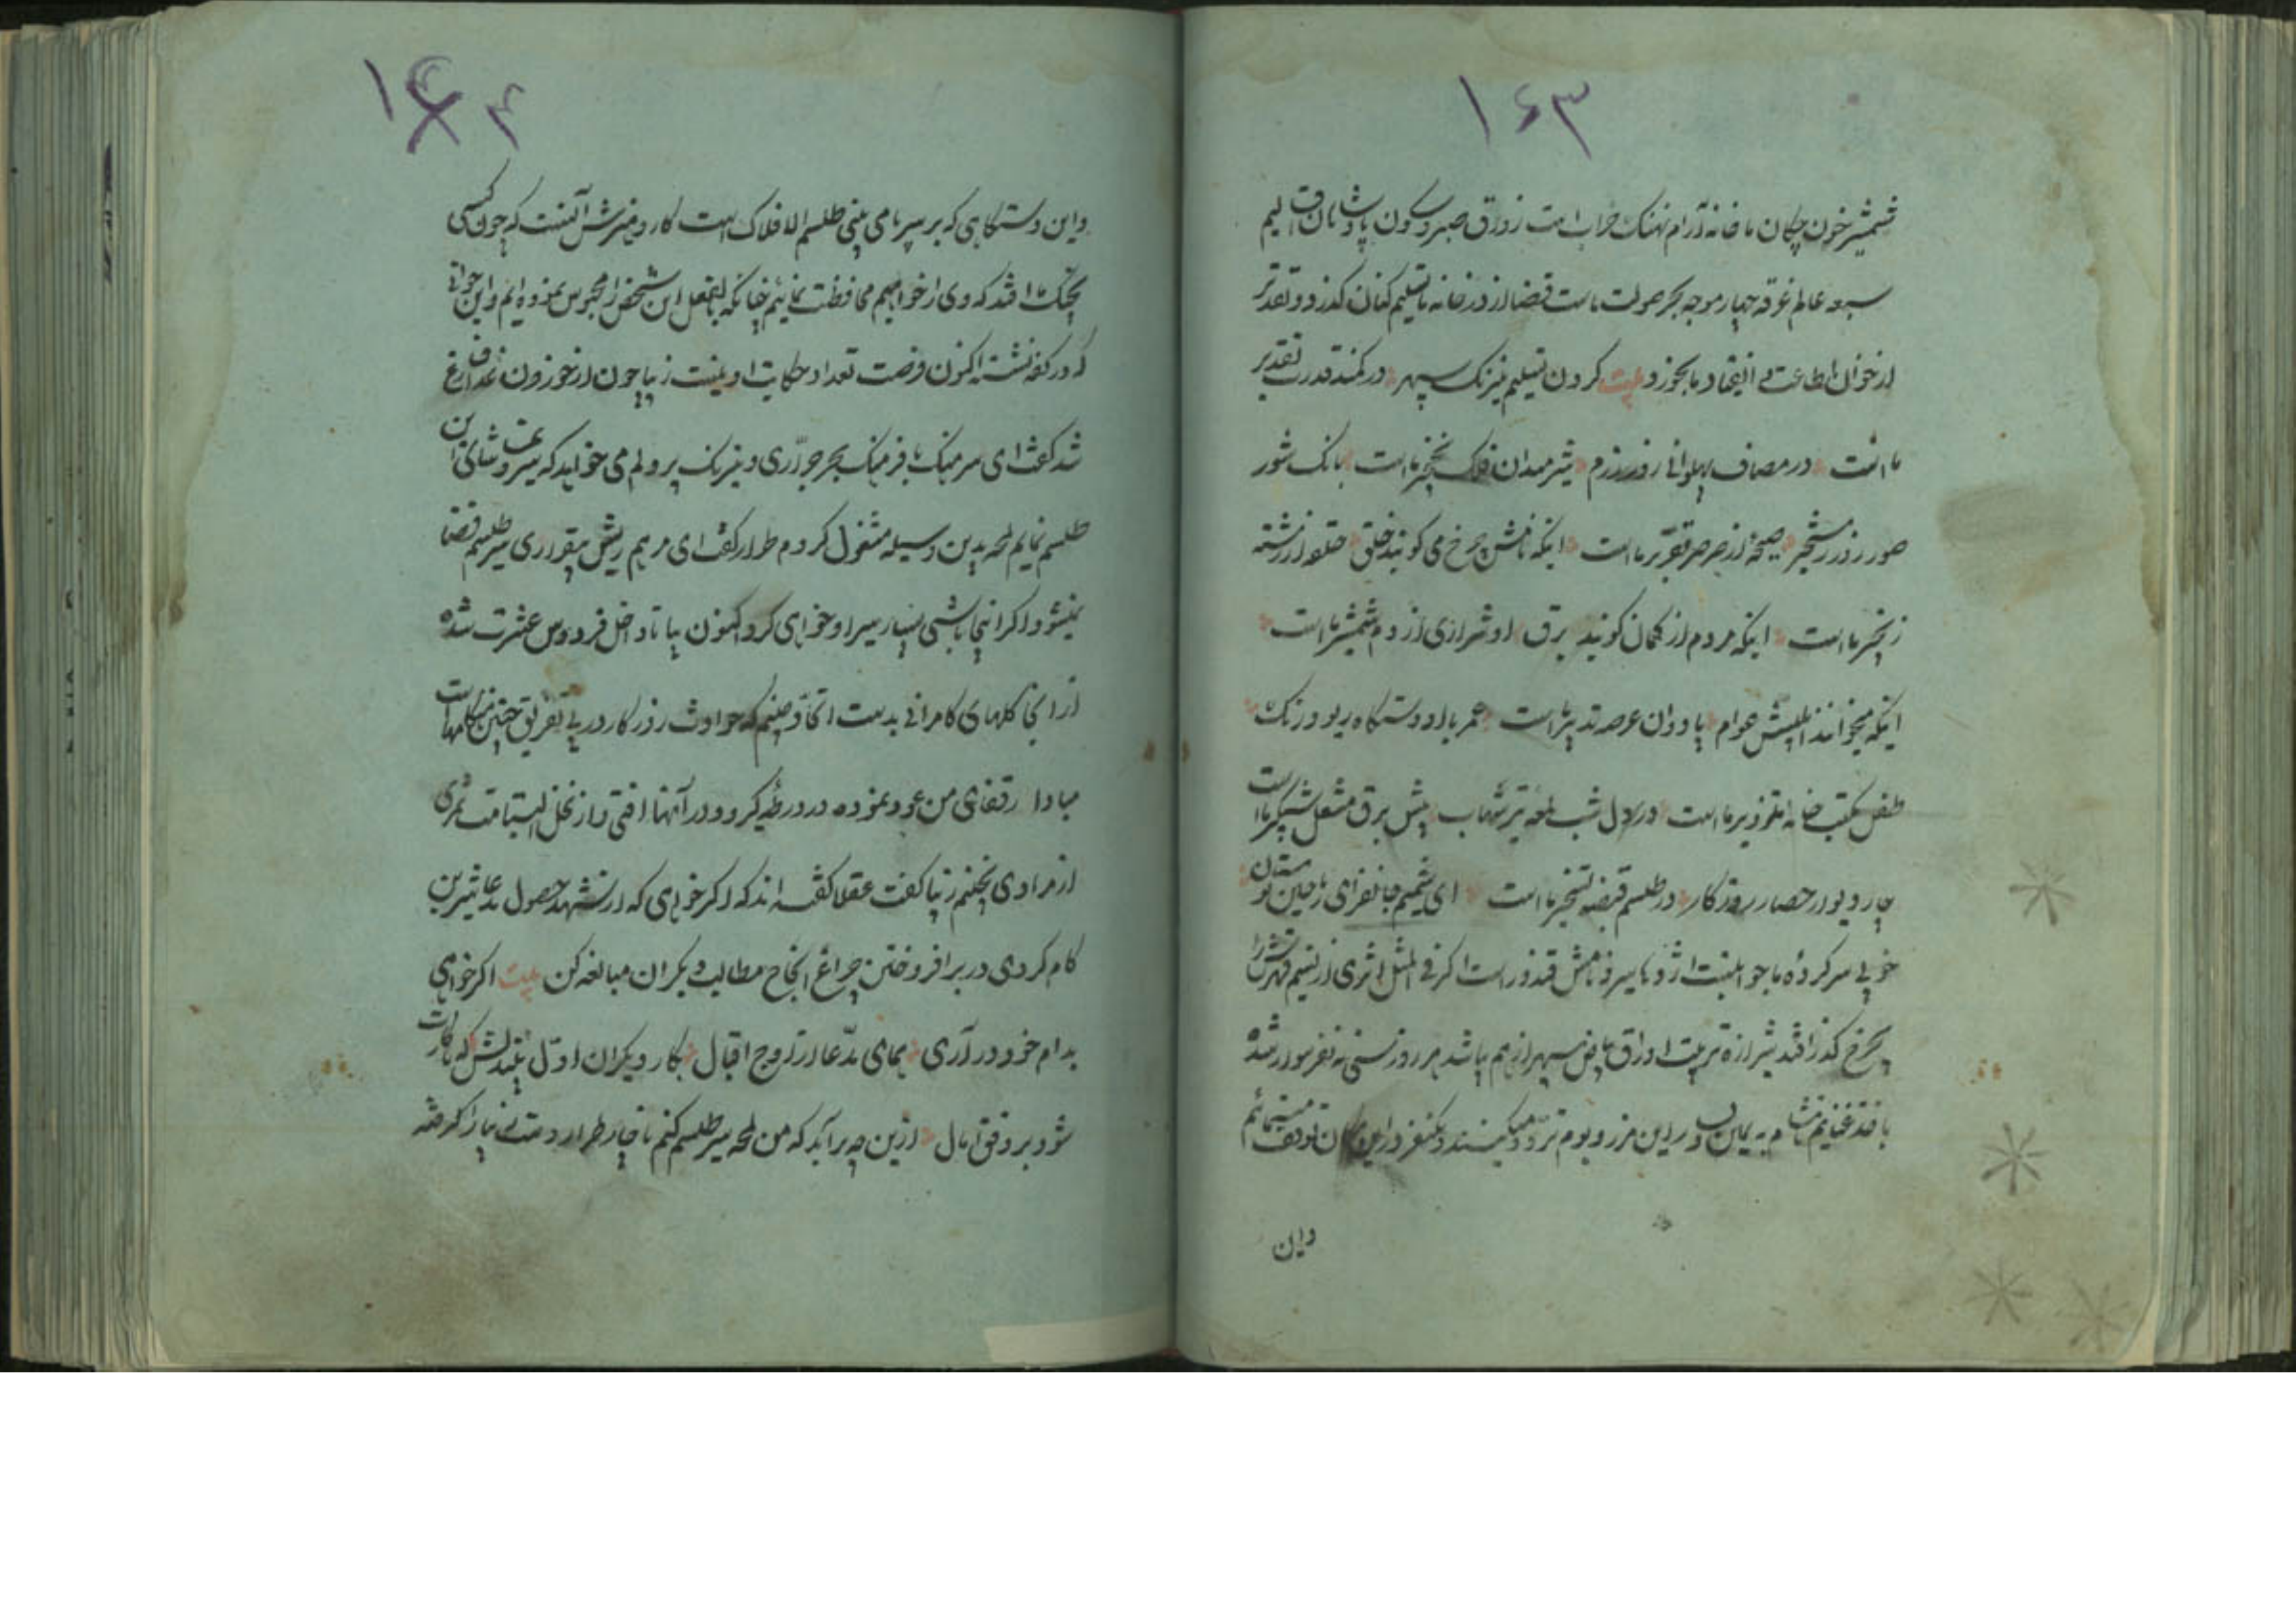 ۱۶۳
شمشیر خون چکان ما خانه آرام نهنک خراب است زورق صبر و سکون پادشاهان اقالیم
سبعه عالم غرقه چهار موجه بحر صولت ماست قضا از در خانه ما تسلیم کنان کذرد و تقدیر
از خوان اطاعت انقیاد ما بخورد بیت کردن تسلیم نیرنک سپهر در کمند قدرت تقدیر
ماست در مصاف پهلوانی روز رزم شیر میدان فلک نخجیر ماست بانک شور
صور روز رستخیز صیحه از صرصر تقریر ماست اینکه نامش چرخ می کویند خلق حلقه از رشته
زنجیر ماست اینکه مردم از کمان کویند برق او شراری از دم شمشیر ماست
اینکه میخوانند ابلیسش عوام پادوان عرصه تدبیر ماست عمر با او دستکاه ریو و رنک
طفل مکتب خانه تزویر ماست در دل شب لمعه تیر شهاب پیش برق مشعل شبکیر ماست
چار دیوار حصار روزکار در طلسم قبضه تسخیر ماست ای شمیم جانفزای ریاحین بوستان
خوبی سر کرده ما جوانیست اژدها سیر و نامش قندور است اکر فی المثل اثری از نسیم قهرش را
بچرخ کذر افتد شیرازه تربیت اوراق بیاض سپهر از هم پاشد هر روز سی نه نفر سوار شده
یافتد غنایم در این مرز و بوم تردد میکنند و یکنفر در این مکان توقف مینمائیم
واین
۱۶۴
واین دستکاهی که بر سر ما می بینی طلسم الافلاک است کار و هنرش آنست که چون کسی
بچنک ما افتد که وی را خواهیم محافظت نمائیم چنانکه بالفعل این شخص را محبوس نموده ایم و این جوانی
که در کوه نشسته اکنون فرصت تعداد حکایت او نیست زیبا چون از خوردن غذا فارغ
شد کفت ای سرهنک با فرهنک بحر جراری و نیرنک پر دلم می خواهد که سیر و تماشای این
طلسم نمایم لمحه بدین وسیله مشغول کردم طرار کفت ای مرهم ریش بیقراری سیر طلسم قضا
نمیشود اکر اینجا باشی بسیار سیر او خواهی کرد اکنون بیا تا داخل فردوس عشرت شده
از آنجا کلهای کامرانی بدست اتحاد چینیم که حوادث روزکار در پی تفریق چنین هنکامهاست
مبادا رفقای من عود نموده در ورطه کیر و در آنها افتی و از نخل التیامت ثمری
از مرادی نچینم زیبا کفت عقلا کفته اند که اکر خواهی که از شهد حصول مدعا شیرین
کام کردی در بر افروختن چراغ انجاح مطالب دیکران مبالغه کن بیت اکر خواهی
بدام خود در آری همای مدعا از اوج اقبال بکار دیکران اول بیندیش که تا کارت
شود بر وفق آمال ازین چه برآید که من لمحه سیر طلسم کنم ناچار طرار دست زیبا را کرفته